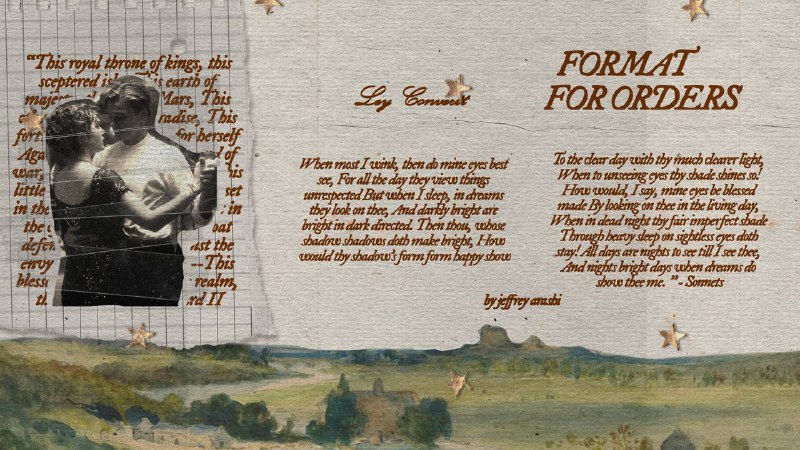 "This royal throne of kings, this
sceptered is This earth of
majes Mars, This
radise, This
for for herself
Aga of
war, his
little set
in the in
the oat
defen ast the
envy --This
bless realm,
th rd II
Ley Conveux
When most I wink, then do mine eyes best
see, For all the day they view things
unrespected But when I sleep, in dreams
they look on thee, And darkly bright are
bright in dark directed. Then thou, whose
shadow shadows doth make bright, How
would thy shadow's form form happy show
by jeffrey arashi
FORMAT
FOR ORDERS
To the clear day with thy much clearer light,
When to unseeing eyes thy shade shines so!
How would, I say, mine eye be blessed
made By looking on thee in the living day,
When in dead night thy fair imperfect shade
Through heavy sleep on sightless eyes doth
stay! All days are nights to see till I see thee,
And nights bright days when dreams do
show thee me. " - Sonnets